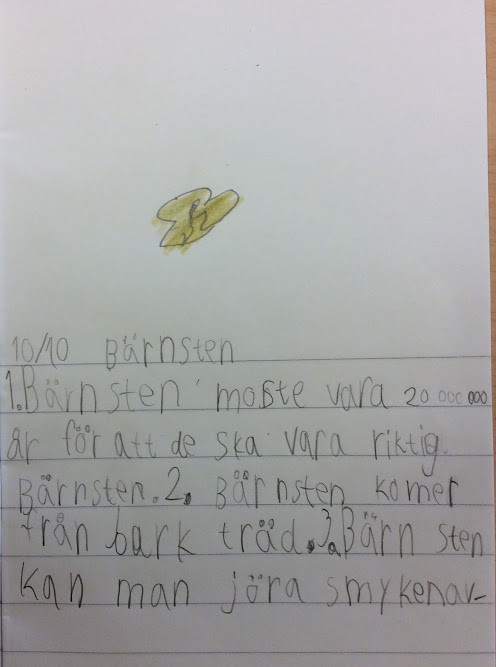 10/10 Bärnsten
1. Bärnsten måste vara 20 000 000
år för att de ska vara riktig.
Bärnsten. 2. Bärnsten komer
från bark träd. 3. Bärn sten
kan man jöra smykenav-